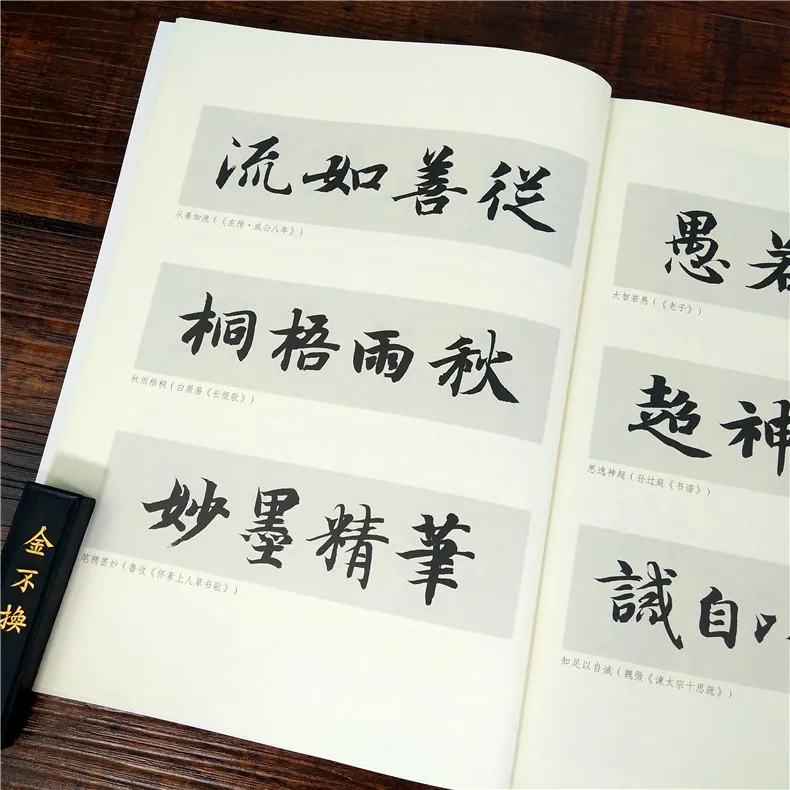 從善如流
从善如流(《左传·成公八年》)
秋雨梧桐
秋雨梧桐(白居易《长恨歌》)
筆精墨妙
笔精墨妙(鲁收《怀素上人草书歌》)
若愚
大智若愚(《老子》)
神超
思逸神超(孙过庭《书谱》)
自誡
知足以自诫(魏徵《谏太宗十思疏》)
金不換